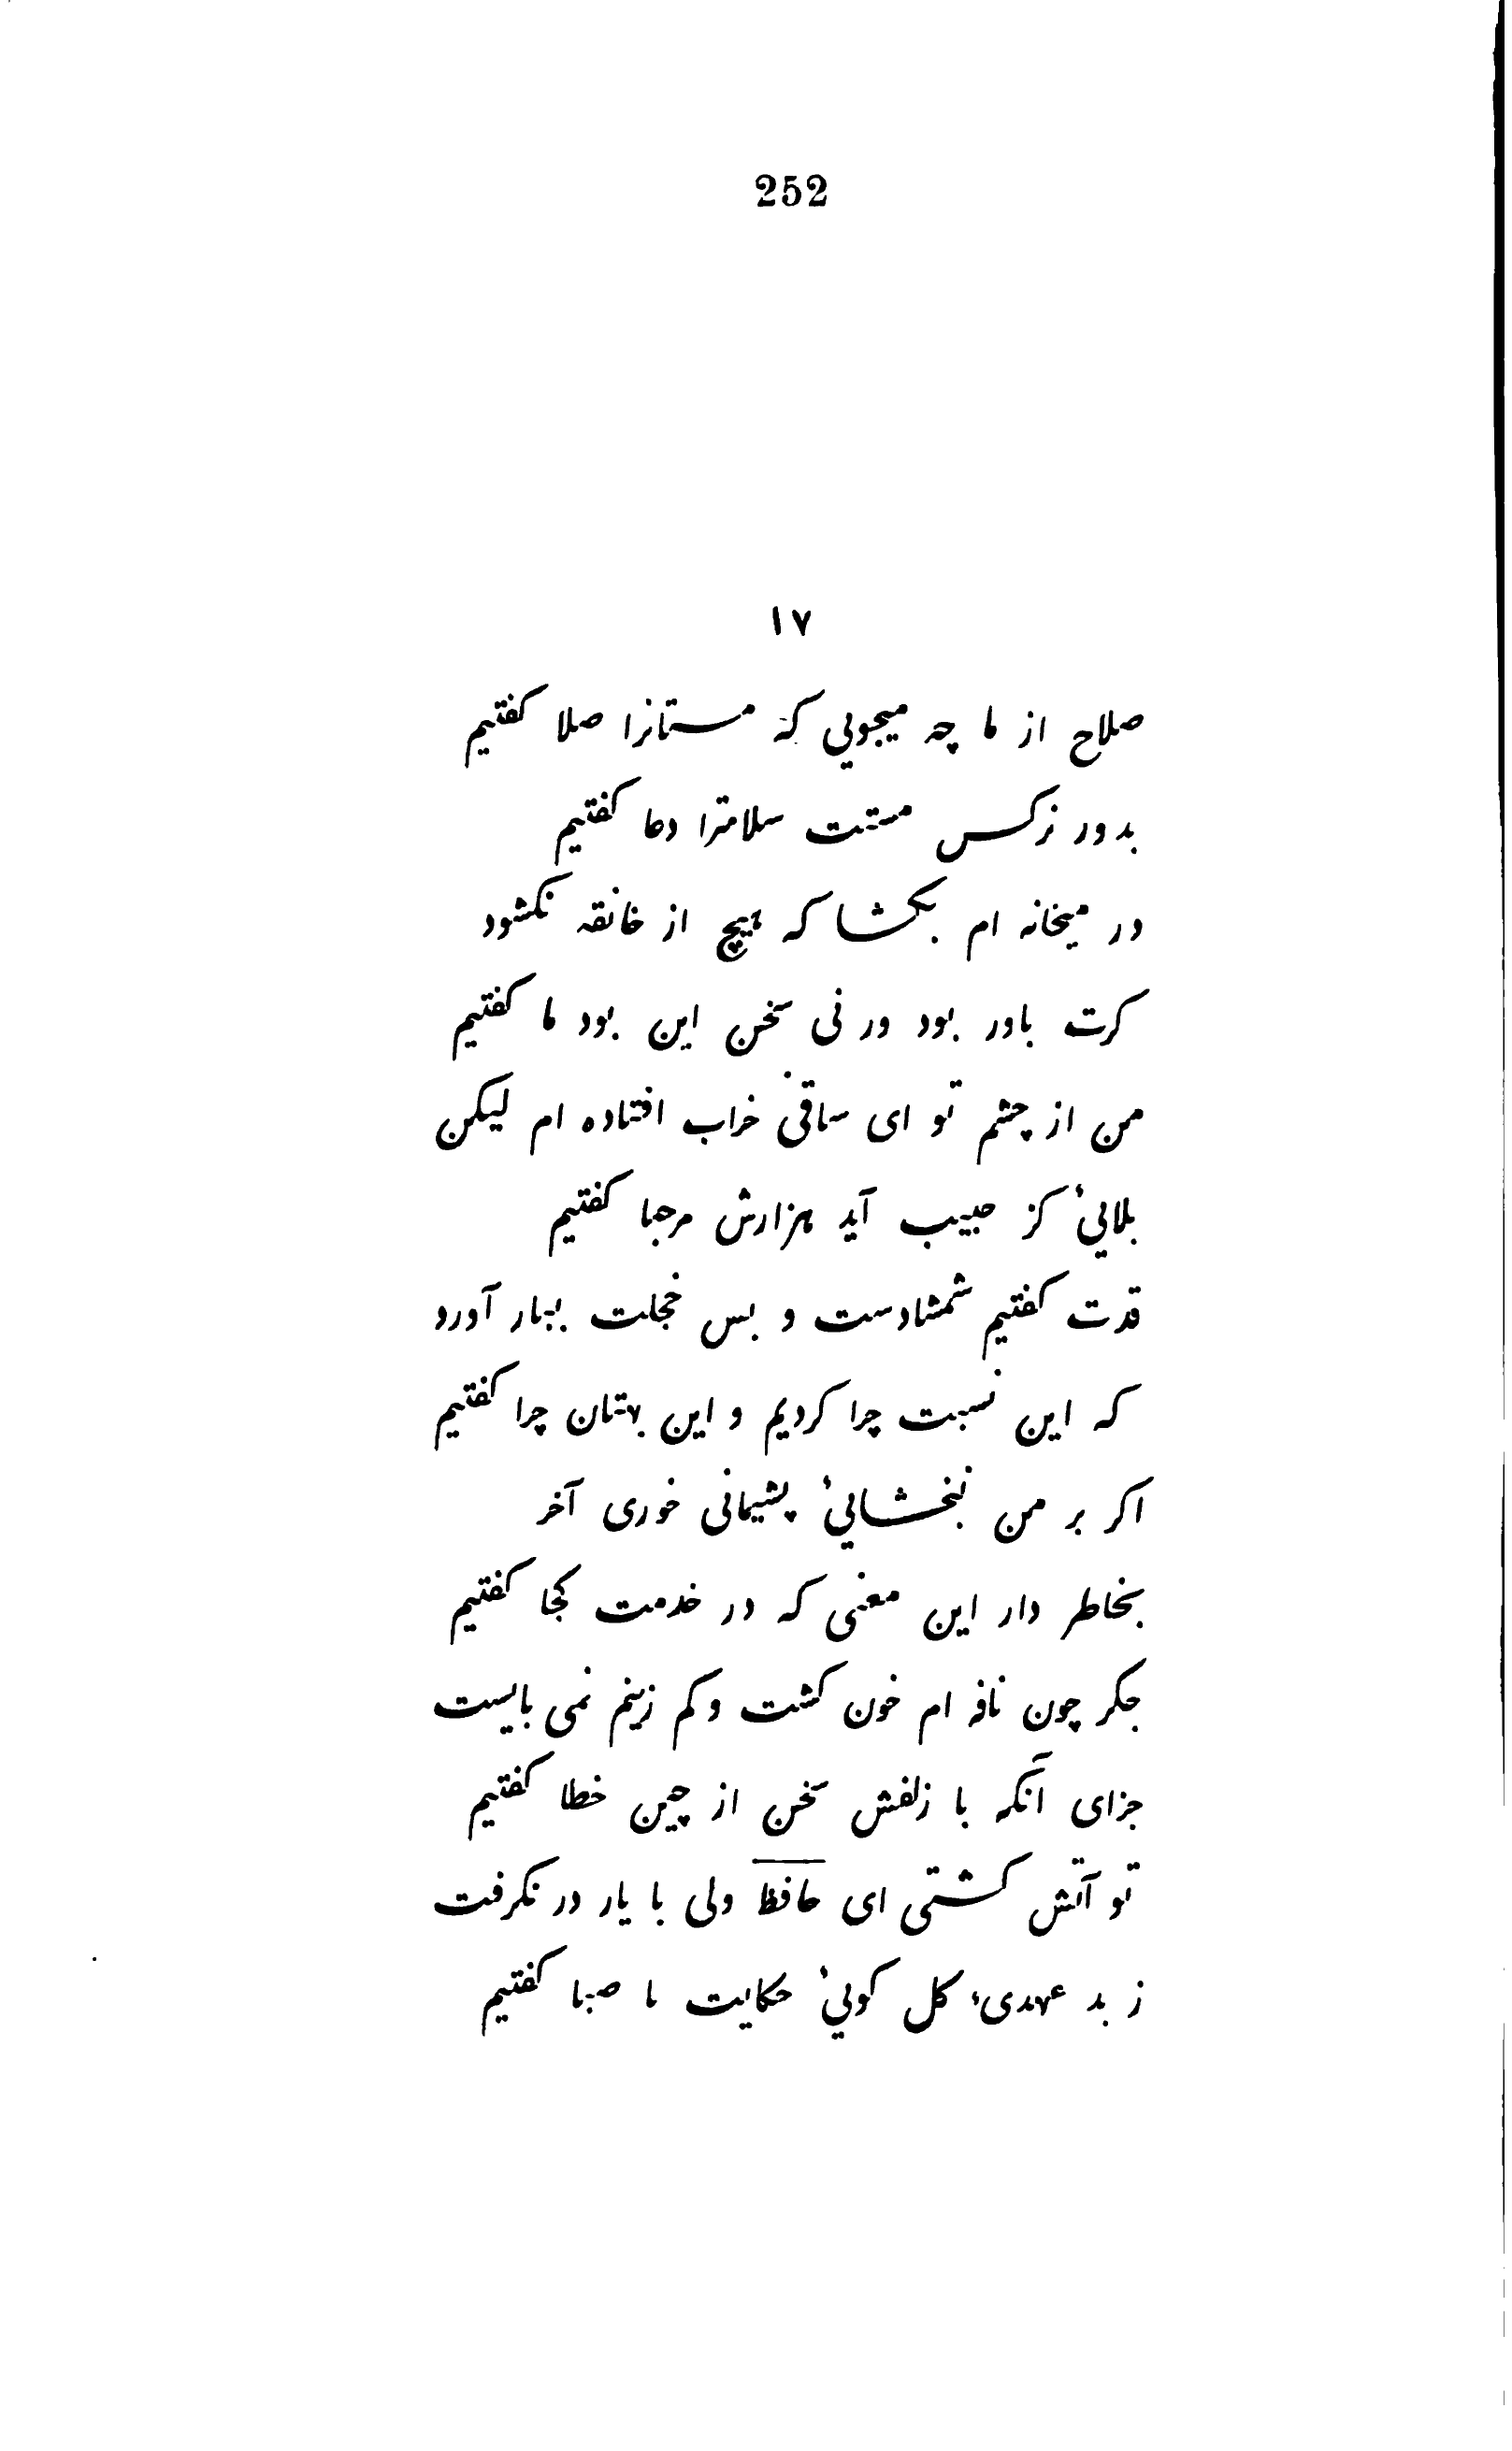 252
۱۷
صلاح از ما چه میجویی که مستانرا صلا کفتیم
بدور نرکس مستت سلامترا دعا کفتیم
در میخانه ام بکشا که هیچ از خانقه نکشود
کرت باور بود ور نی سخن این بود ما کفتیم
من از چشم تو ای ساقی خراب افتاده ام لیکن
بلاییٔ کز حبیب آید هزارش مرحبا کفتیم
قدت کفتیم شمشادست و بس خجلت ببار آورد
که این نسبت چرا کردیم و این بهتان چرا کفتیم
اکر بر من نبخشاییٔ پشیمانی خوری آخر
بخاطر دار این معنی که در خدمت کجا کفتیم
جکر چون نافه ام خون کشت و کم زینم نمی بایست
جزای آنکه با زلفش سخن از چین خطا کفتیم
تو آتش کشتی ای حافظ ولی با یار در نکرفت
ز بد عهدیٔ کل کوییٔ حکایت با صبا کفتیم